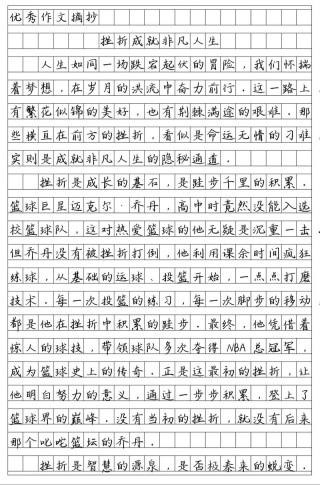 优秀作文摘抄
挫折成就非凡人生
人生如同一场跌宕起伏的冒险，我们怀揣
着梦想，在岁月的洪流中奋力前行．这一路上，
有繁花似锦的美好，也有荆棘满途的艰难．那
些横亘在前方的挫折，看似是命运无情的刁难，
实则是成就非凡人生的隐秘通道．
挫折是成长的基石，是跬步千里的积累．
篮球巨星迈克尔·乔丹，高中时竟然没能入选
校篮球队，这对热爱篮球的他无疑是沉重一击．
但乔丹没有被挫折打倒，他利用课余时间疯狂
练球，从基础的运球、投篮开始，一点点打磨
技术．每一次投篮的练习，每一次脚步的移动，
都是他在挫折中积累的跬步．最终，他凭借着
惊人的球技，带领球队多次夺得 NBA 总冠军，
成为篮球史上的传奇．正是这最初的挫折，让
他明白努力的意义，通过一步步积累，登上了
篮球界的巅峰．没有当初的挫折，就没有后来
那个叱咤篮坛的乔丹．
挫折是智慧的源泉，是否极泰来的蜕变．